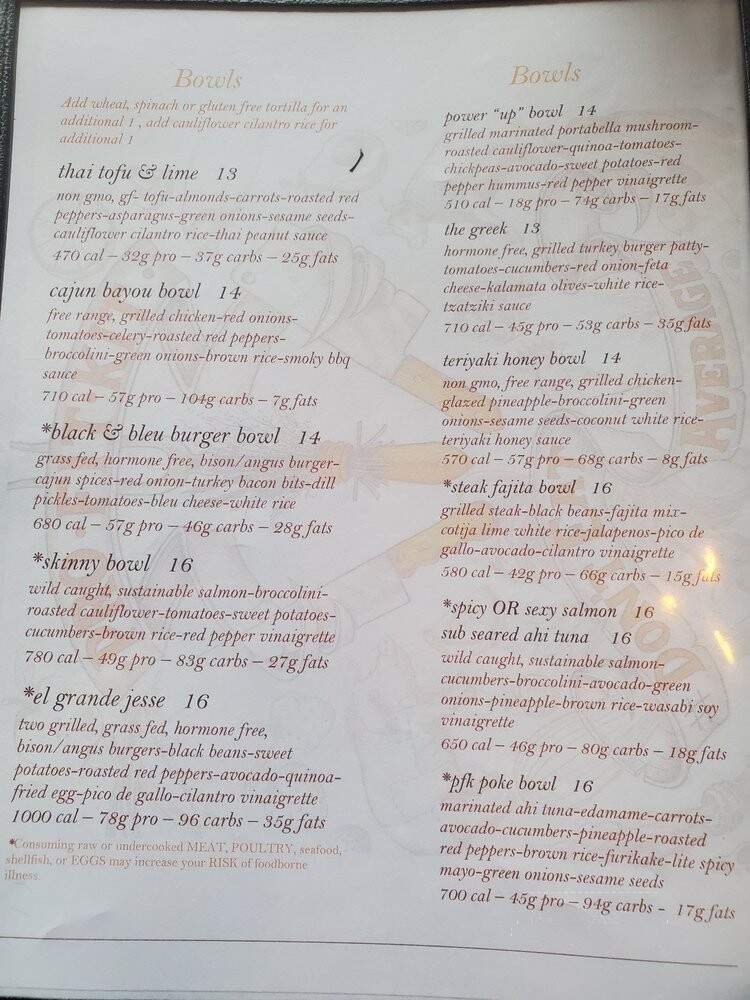 Bowls
Add wheat, spinach or gluten free tortilla for an
additional 1 , add cauliflower cilantro rice for
additional 1
thai tofu & lime 13
non gmo, gf- tofu-almonds-carrots-roasted red
peppers-asparagus-green onions-sesame seeds-
cauliflower cilantro rice-thai peanut sauce
470 cal – 32g pro – 37g carbs – 25g fats
cajun bayou bowl 14
free range, grilled chicken-red onions-
tomatoes-celery-roasted red peppers-
broccolini-green onions-brown rice-smoky bbq
sauce
710 cal – 57g pro – 104g carbs – 7g fats
*black & bleu burger bowl 14
grass fed, hormone free, bison/angus burger-
cajun spices-red onion-turkey bacon bits-dill
pickles-tomatoes-bleu cheese-white rice
680 cal – 57g pro – 46g carbs – 28g fats
*skinny bowl 16
wild caught, sustainable salmon-broccolini-
roasted cauliflower-tomatoes-sweet potatoes-
cucumbers-brown rice-red pepper vinaigrette
780 cal – 49g pro – 83g carbs – 27g fats
*el grande jesse 16
two grilled, grass fed, hormone free,
bison/angus burgers-black beans-sweet
potatoes-roasted red peppers-avocado-quinoa-
fried egg-pico de gallo-cilantro vinaigrette
1000 cal – 78g pro – 96 carbs – 35g fats
*Consuming raw or undercooked MEAT, POULTRY, seafood,
shellfish, or EGGS may increase your RISK of foodborne
illness.
Bowls
power "up" bowl 14
grilled marinated portabella mushroom-
roasted cauliflower-quinoa-tomatoes-
chickpeas-avocado-sweet potatoes-red
pepper hummus-red pepper vinaigrette
510 cal – 18g pro – 74g carbs – 17g fats
the greek 13
hormone free, grilled turkey burger patty-
tomatoes-cucumbers-red onion-feta
cheese-kalamata olives-white rice-
tzatziki sauce
710 cal – 45g pro – 53g carbs – 35g fats
teriyaki honey bowl 14
non gmo, free range, grilled chicken-
glazed pineapple-broccolini-green
onions-sesame seeds-coconut white rice-
teriyaki honey sauce
570 cal – 57g pro – 68g carbs – 8g fats
*steak fajita bowl 16
grilled steak-black beans-fajita mix-
cotija lime white rice-jalapenos-pico de
gallo-avocado-cilantro vinaigrette
580 cal – 42g pro – 66g carbs – 15g fats
*spicy OR sexy salmon 16
sub seared ahi tuna 16
wild caught, sustainable salmon-
cucumbers-broccolini-avocado-green
onions-pineapple-brown rice-wasabi soy
vinaigrette
650 cal – 46g pro – 80g carbs – 18g fats
*pfk poke bowl 16
marinated ahi tuna-edamame-carrots-
avocado-cucumbers-pineapple-roasted
red peppers-brown rice-furikake-lite spicy
mayo-green onions-sesame seeds
700 cal – 45g pro – 94g carbs - 17g fats
AVERAGE
DON'T